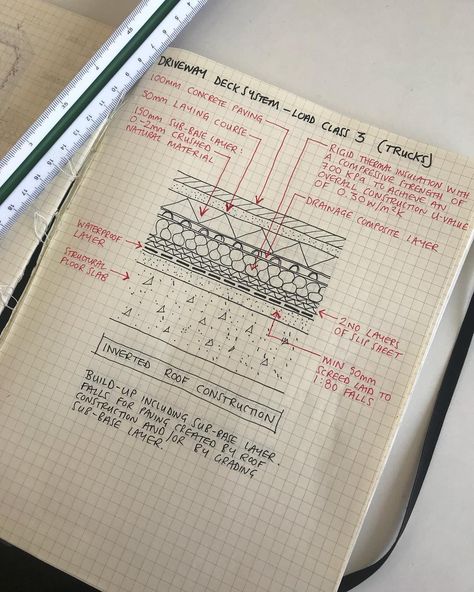 DRIVEWAY DECK SYSTEM – LOAD CLASS 3 (TRUCKS)
100MM CONCRETE PAVING
50MM LAYING COURSE
150MM SUB-BASE LAYER:
0-2MM CRUSHED
NATURAL MATERIAL
RIGID THERMAL INSULATION WITH
A COMPRESSIVE STRENGTH OF
700 KPA TO ACHIEVE AN
OVERALL CONSTRUCTION U-VALUE
OF 0.30W/M²K
DRAINAGE COMPOSITE LAYER
WATERPROOF
LAYER
STRUCTURAL
FLOOR SLAB
2NO LAYERS
OF SLIP SHEET
MIN 50MM
SCREED LAID TO
1:80 FALLS
INVERTED ROOF CONSTRUCTION
BUILD-UP INCLUDING SUB-BASE LAYER.
FALLS FOR PAVING CREATED BY ROOF
CONSTRUCTION AND/OR BY GRADING
SUB-BASE LAYER.